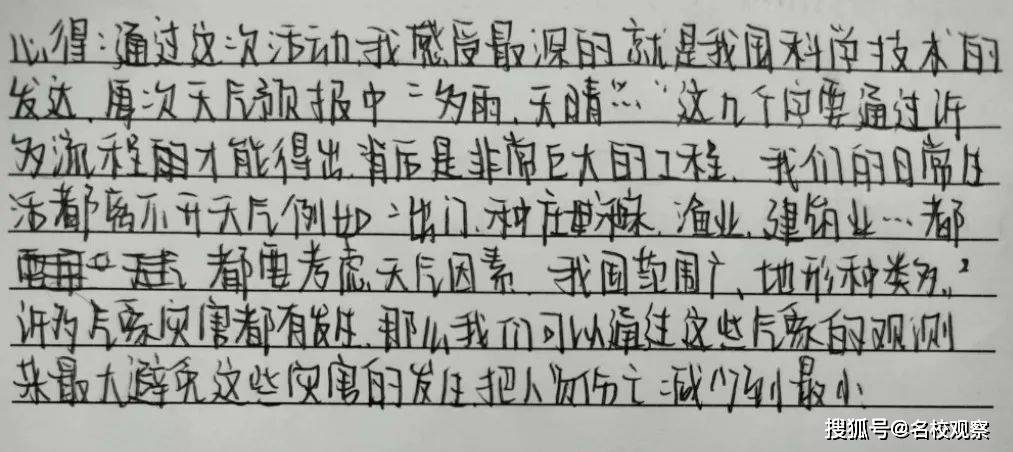 心得:通过这次活动,我感受最深的就是我国科学技术的
发达,每次天气预报中“多雨,天晴…”这几个字要通过许
多流程才能得出,背后是非常巨大的工程,我们的日常生
活都离不开天气例如:出门,种庄稼,渔业,建筑业…都
都要考虑天气因素,我国范围广,地形种类多,
许多气象灾害都有发生,那么我们可以通过这些气象的观测
来最大避免这些灾害的发生,把人员伤亡减少到最小
搜狐号@名校观察